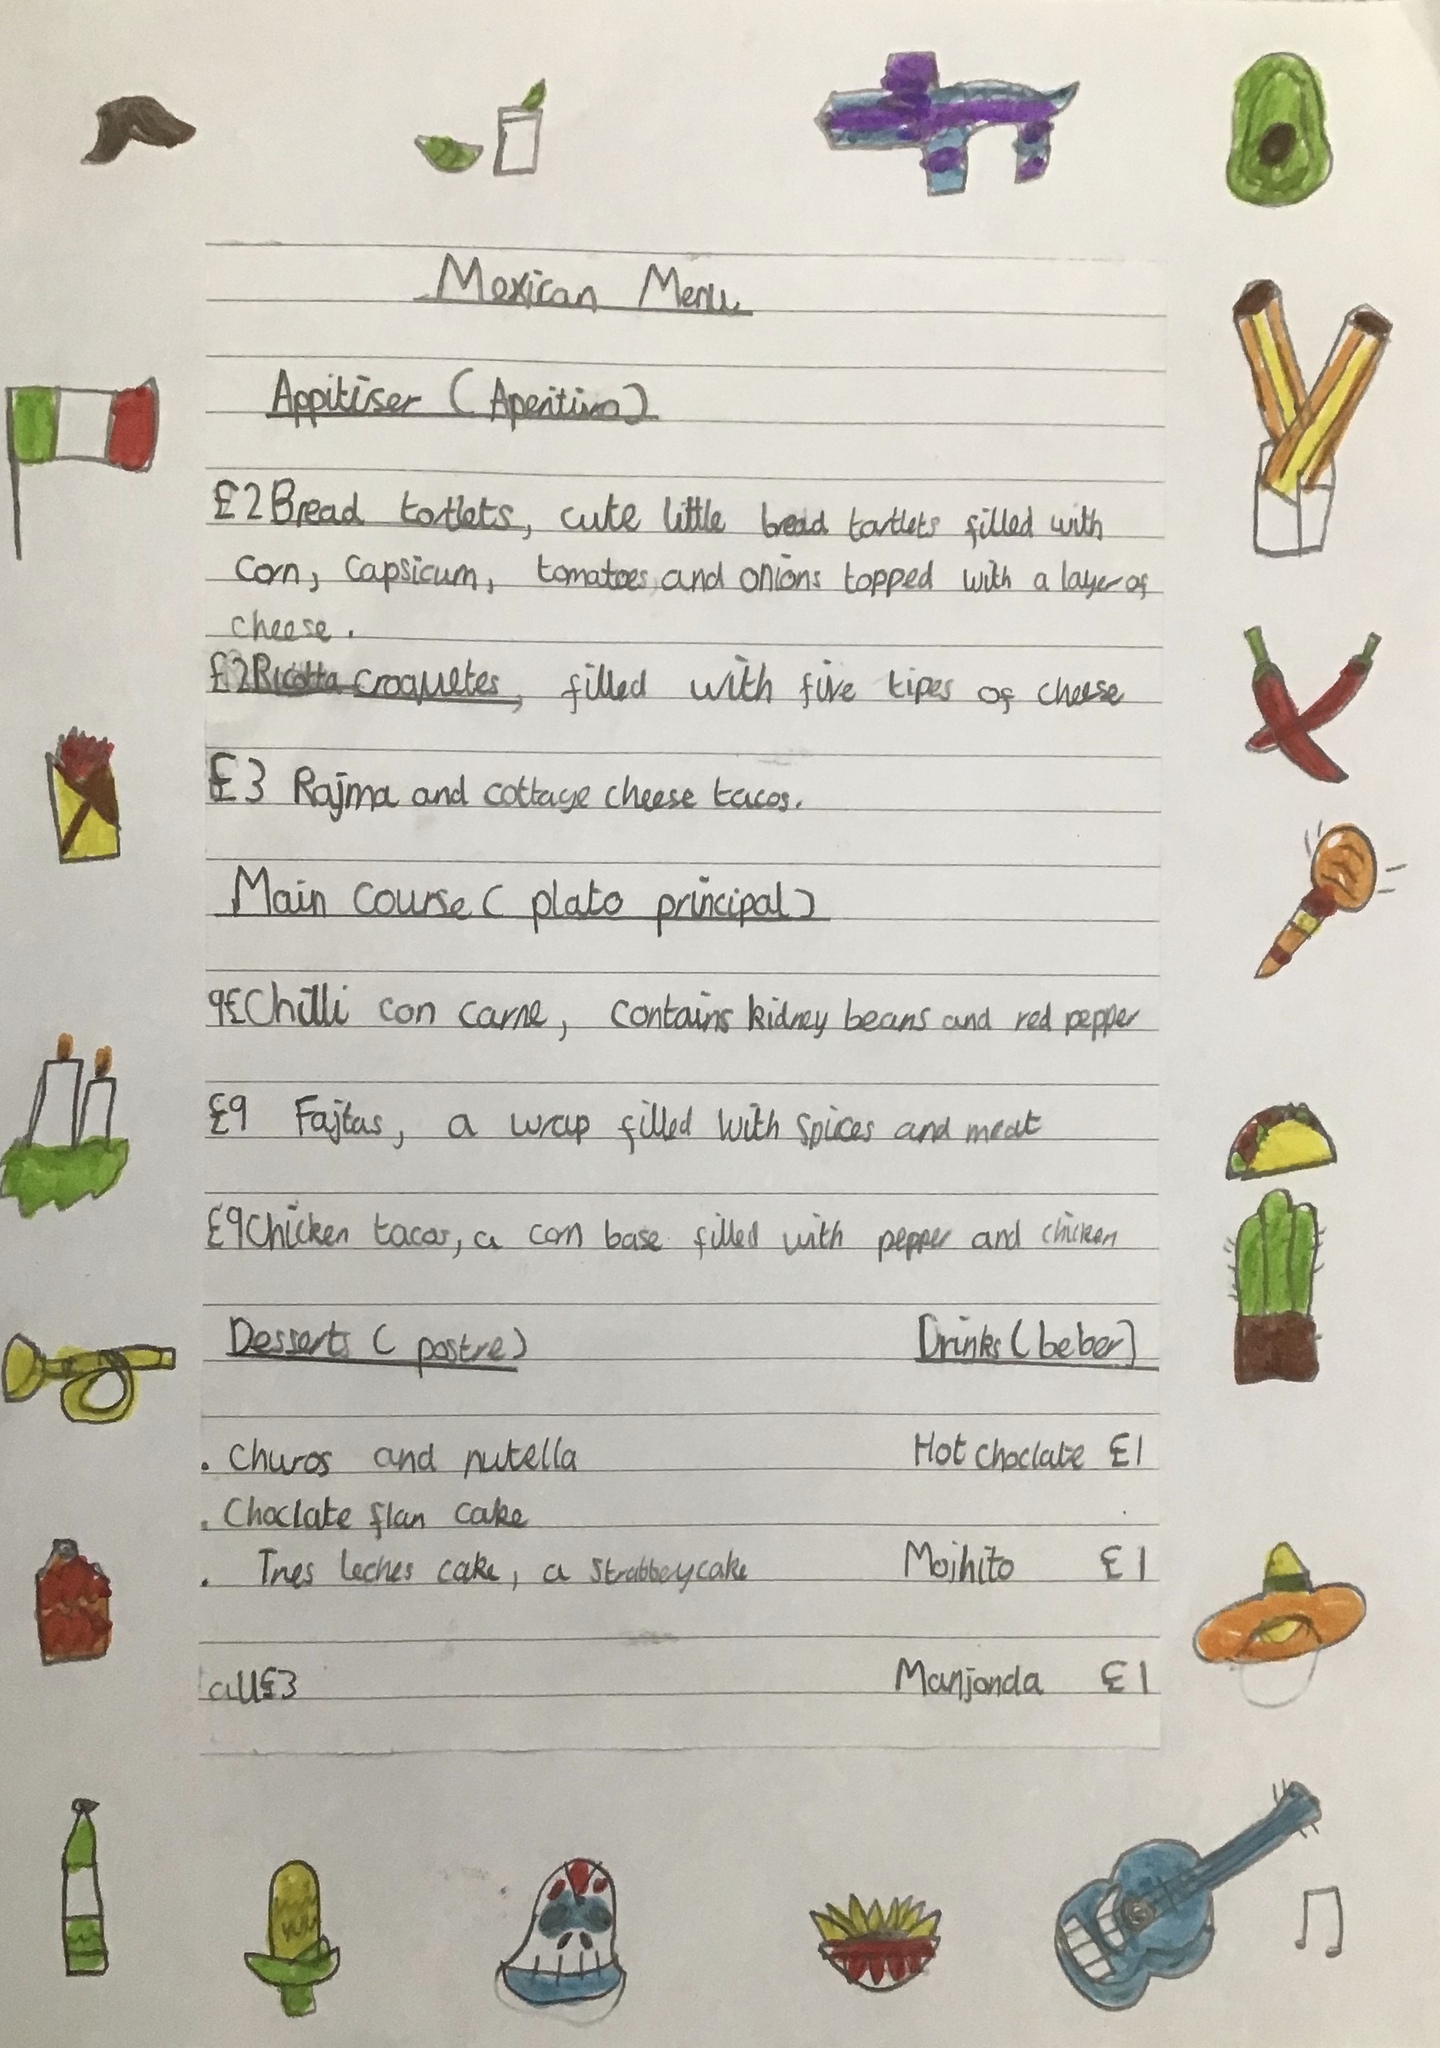 Mexican Menu
Appitiser (Aperitivo)
£2 Bread tortlets, cute little bread tartlets filled with
corn, capsicum, tomatoes, and onions topped with a layer of
cheese.
£2 Ricotta croquetes, filled with five tipes of cheese
£3 Rajma and cottage cheese tacos.
Main course (plato principal)
9£ Chilli con carne, contains kidney beans and red pepper
£9 Fajtas, a wrap filled with spices and meat
£9 Chicken tacos, a corn base filled with pepper and chicken
Desserts (postre)
. Churos and nutella
. Choclate flan cake
. Tres leches cake, a strabbeycake
all £3
Drinks (beber)
Hot choclate £1
Mojhito £1
Manjonda £1